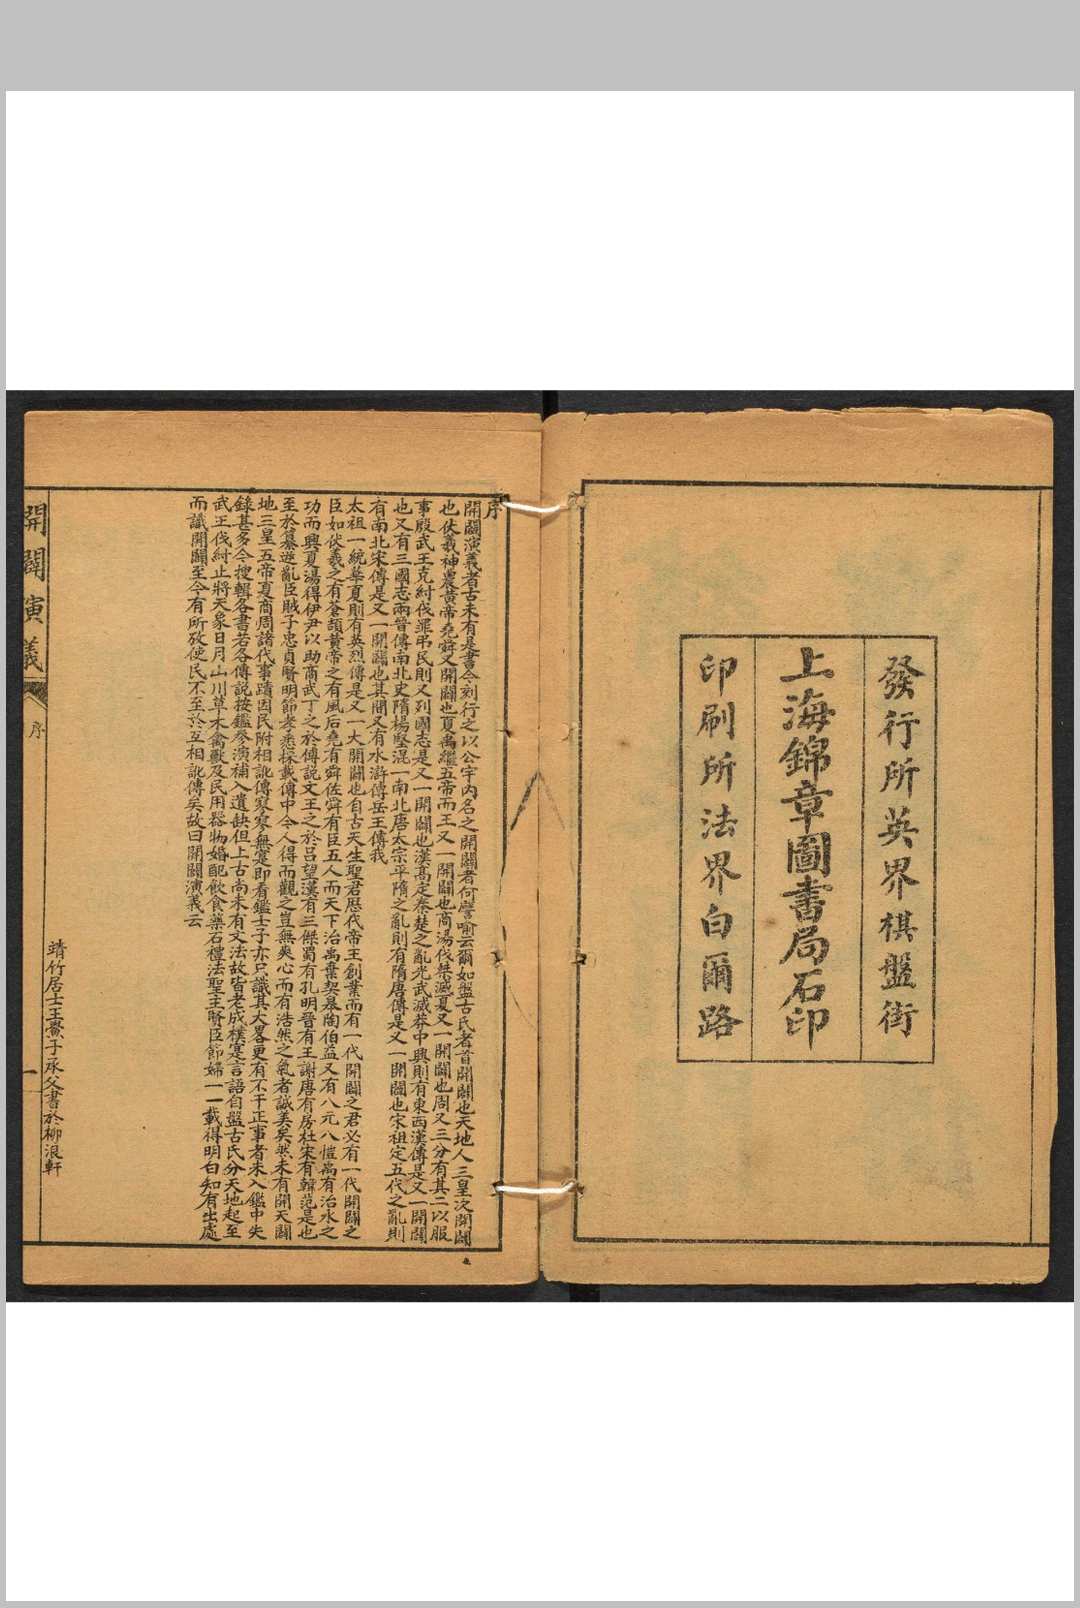 發行所英界棋盤街
上海錦章圖書局石印
印刷所法界白爾路
序
開闢演義者古未有是書今刻行之以公宇內名之開闢者何譬喻云爾如盤古氏者首開闢也天地人三皇次開闢
也伏羲神農黃帝堯舜又開闢也夏禹繼五帝而王又一開闢也商湯伐桀滅夏又一開闢也周又三分有其二以服
事殷武王克紂伐罪弔民則又列國志是又一開闢也漢高定秦楚之亂光武滅莽中興則有東西漢傳是又一開闢
也又有三國志兩晉傳南北史隋楊堅混一南北唐太宗平隋之亂則有隋唐傳是又一開闢也宋祖定五代之亂則
有南北宋傳是又一開闢也其間又有水滸傳岳王傳我
太祖一統華夏則有英烈傳是又一大開闢也自古天生聖君歷代帝王創業而有一代開闢之君必有一代開闢之
臣如伏羲之有蒼頡黃帝之有風后堯有舜佐舜有臣五人而天下治禹棄契皋陶伯益又有八元八愷禹有治水之
功而興夏湯得伊尹以助商武丁之於傅說文王之於呂望漢有三傑蜀有孔明晉有王謝唐有房杜宋有韓范是也
至於篡逆亂臣賊子忠貞賢明節孝悉採載傳中今人得而觀之豈無爽心而有浩然之氣者誠美矣然未有開天闢
地三皇五帝夏商周諸代事蹟因民附相訛傳寥寥無寔即看鑑士子亦只識其大畧更有不干正事者未入鑑中失
錄甚多今搜輯各書若各傳說按鑑參演補入遺缺但上古尚未有文法故皆老成樸寔言語自盤古氏分天地起至
武王伐紂止將天象日月山川草木禽獸及民用器物婚配飲食藥石禮法聖主賢臣節婦一一載得明白知有出處
而識開闢至今有所攷使民不至於互相訛傳矣故曰開闢演義云
靖竹居士王黌子承父書於柳浪軒
開闢演義
序
一